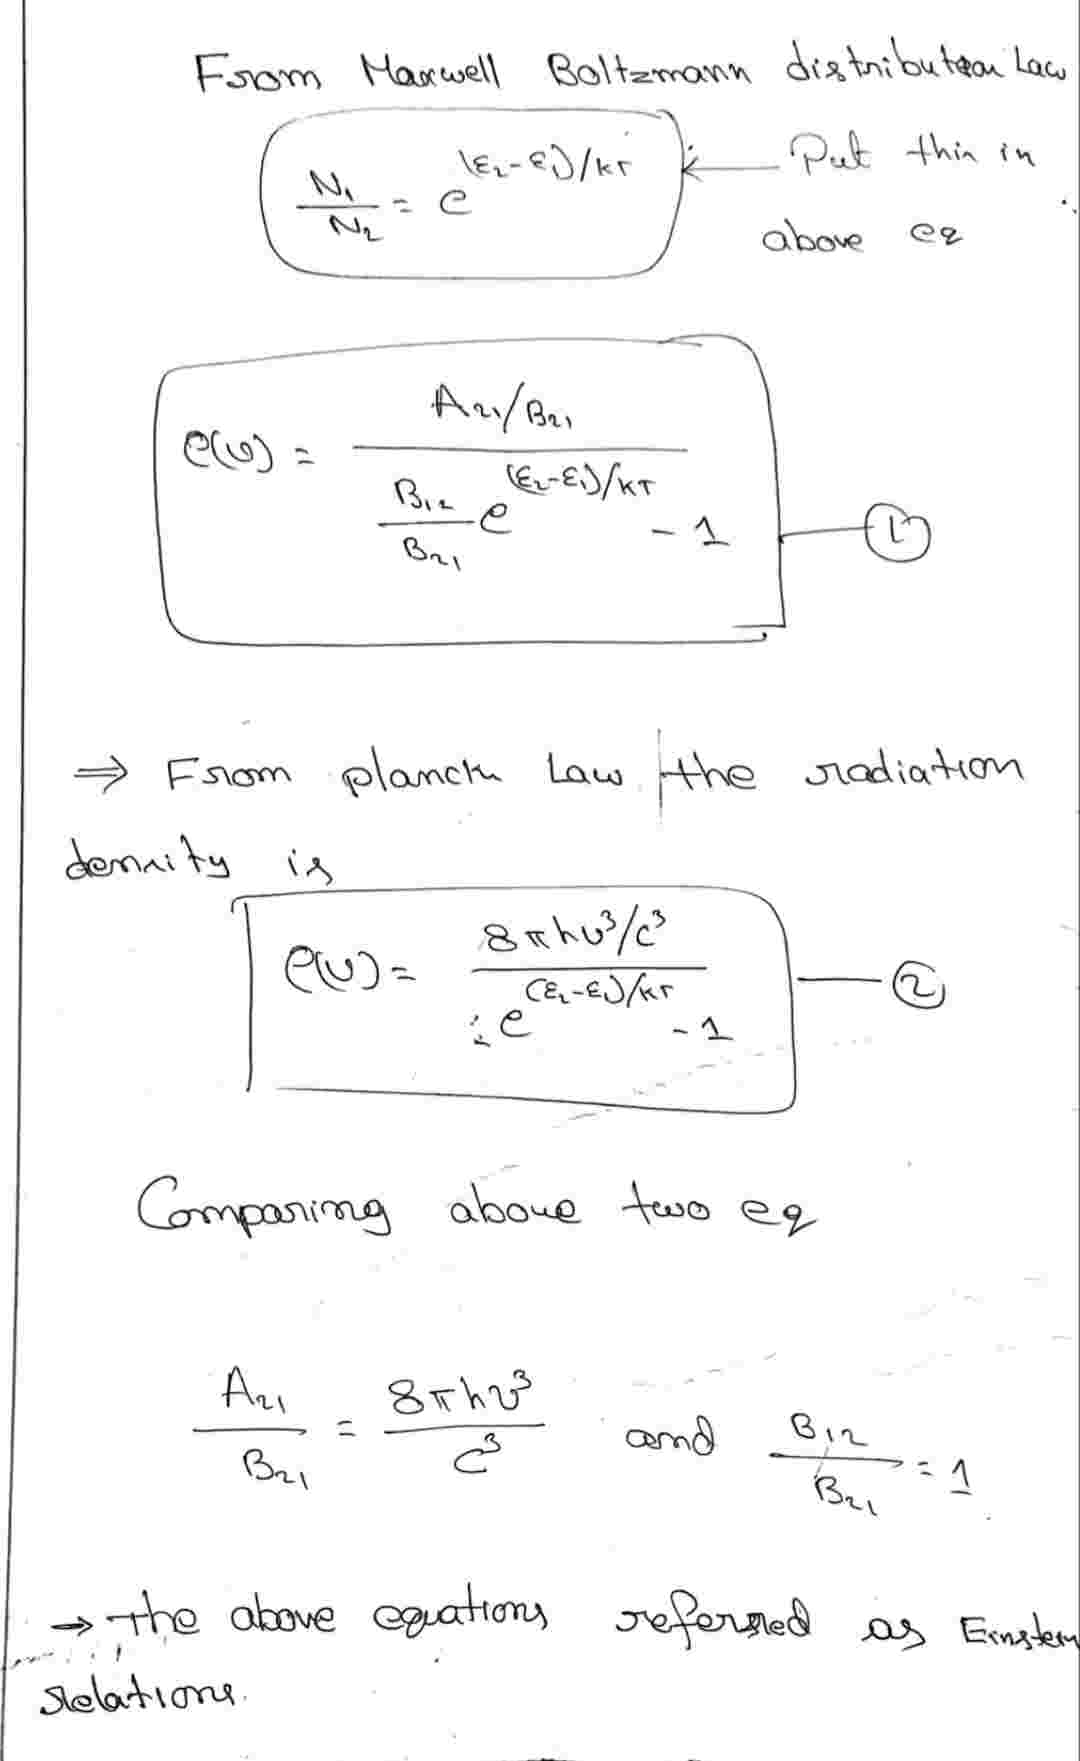 From Maxwell Boltzmann distribution Law
N₁/N₂ = e^(ε₂-ε₁)/kT ← Put this in
above eq
ρ(ν) = (A₂₁/B₂₁) / ((B₁₂/B₂₁) e^(ε₂-ε₁)/kT - 1) — ①
⇒ From planck Law the radiation
density is
ρ(ν) = (8πhν³/c³) / (e^(ε₂-ε₁)/kT - 1) — ②
Comparing above two eq
A₂₁/B₂₁ = 8πhν³/c³ and B₁₂/B₂₁ = 1
→ The above equations referred as Einstein
relations.